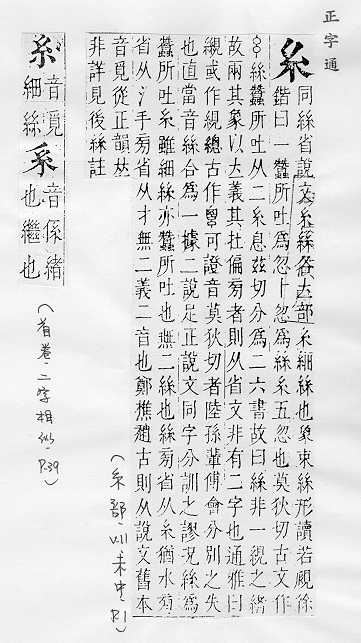 正字通
糸
同絲省說文糸絲各大部糸細絲也象束絲形讀若覛徐
鍇曰一蠶所吐爲忽十忽爲絲糸五忽也莫狄切古文作
絲蠶所吐从二糸息茲切分爲二六書故曰絲非一覛之緒
故兩其象以大義其在偏旁者則从省文非有二字也通雅曰
覛或作總古作可證音莫狄切者陸孫輩傅會分別之失
也直當音絲合爲一據二說足正說文同字分訓之謬況絲爲
蠶所吐糸雖細絲亦蠶所吐也無二絲也絲旁省从糸猶水旁
省从氵手旁省从扌無二義二音也鄭樵趙古則从說文舊本
音覓從正韻𠀤
非詳見後絲註
(糸部·VII未中·P.1)
糸音覓細絲
系音係緒也繼也
(首卷·二字相似·P.39)